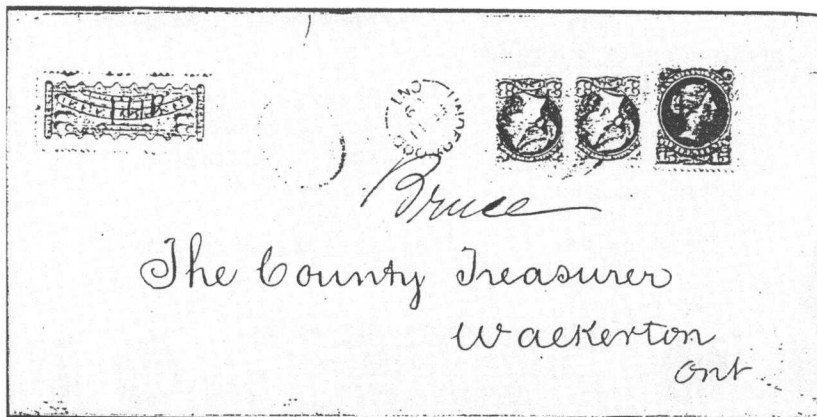 Bruce
The County Treasurer
Walkerton
Ont